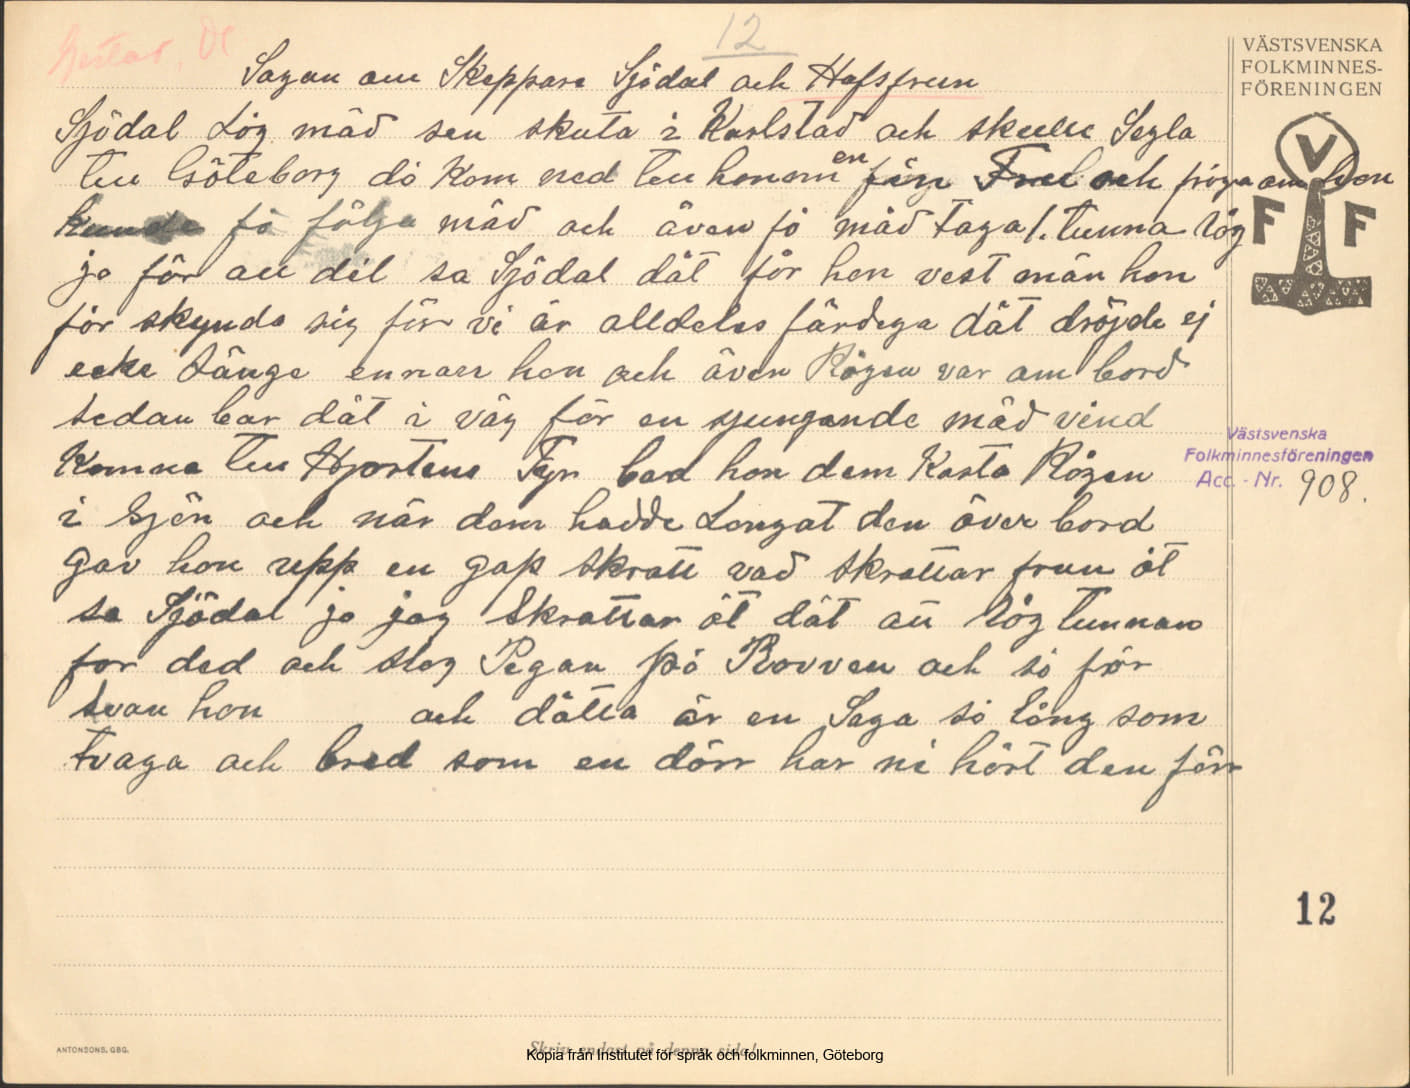 12
Sagan om Skeppare Sjödal och Hafsfrun
VÄSTSVENSKA
FOLKMINNES-
FÖRENINGEN
V
F F
Sjödal Lög mäd sen skuta i Karlstad och skulle Segla
till Göteborg dö kom ned till honom en fin Frel och fröga om hon
kunde fö följa mäd och även fö mäd taga 1. tunna Rög
jo för all dél sa Sjödal dät för hon vest män hon
för skynda sig för vi är alldeles färdega dät dröjde ej
ecke Länge ennan hon och även Rögen var om bord
sedan bar dät i väg för en sjungande mäd vind
Komna till Hjortens Fyr bad hon dem Kasta Rögen
i Sjön och när dom hadde Longat den över bord
gav hon upp en gap skratt vad skrattar frun öt
sa Sjödal jo jag Skrattar öt dät att Rög tunnan
for ded och slog Pegan pö Rovven och söför
svan hon och dätta är en Saga sö Lång som
tvaga och bred som en dörr har ni hört den förr
Västsvenska
Folkminnesföreningen
Acc. - Nr. 908.
12
ANTONSONS, GBG.
Skriv endast på denna sida!
Kopia från Institutet för språk och folkminnen, Göteborg